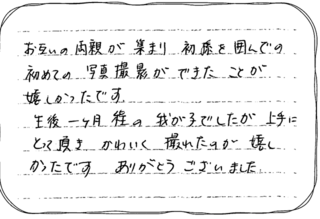 お互いの両親が集まり 初孫を囲んでの
初めての写真撮影ができたことが
嬉しかったです。
生後一ヶ月程の我が子でしたが上手に
とって頂き かわいく撮れたのが嬉し
かったです ありがとうございました。